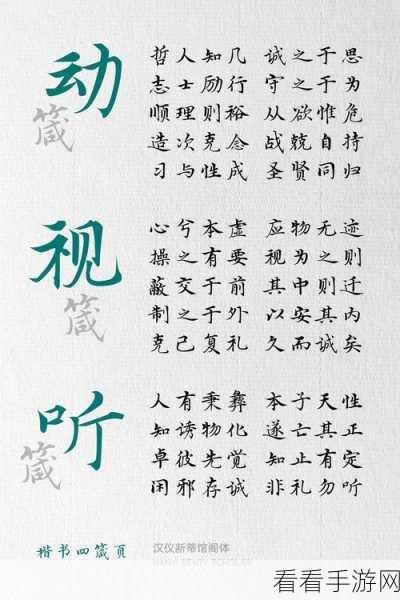 动
箴
哲人知几 诚之于思
志士励行 守之于为
顺理则裕 从欲惟危
造次克念 战兢自持
习与性成 圣贤同归
视
箴
心兮本虚 应物无迹
操之有要 视为之则
蔽交于前 其中则迁
制之于外 以安其内
克己复礼 久而诚矣
听
箴
人有秉彝 本子天性
知诱物化 遂亡其正
卓彼先觉 知止有定
闲邪存诚 非礼勿听
楷书四箴页 汉仪新蒂馆阁体
HANYI SENTY SCHOLAR
看看手游网